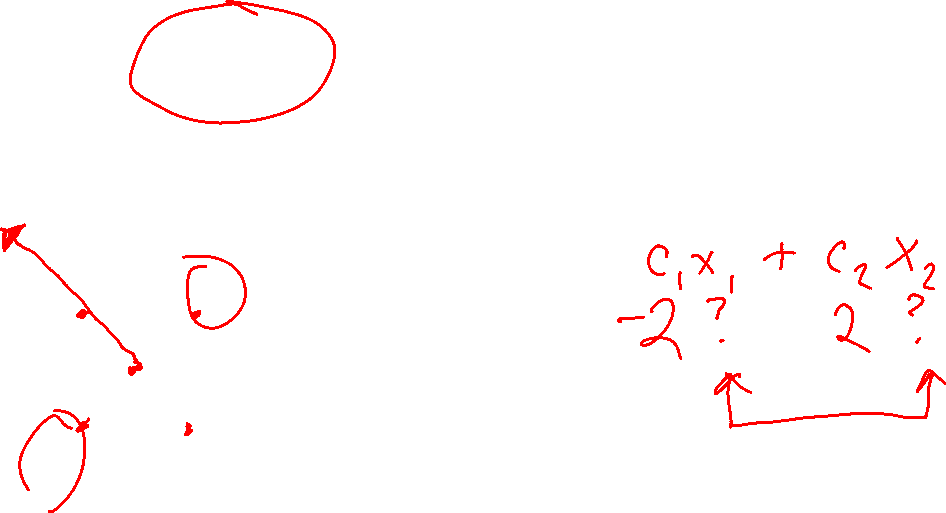 c₁x₁ + c₂x₂
-2 ? 2 ?